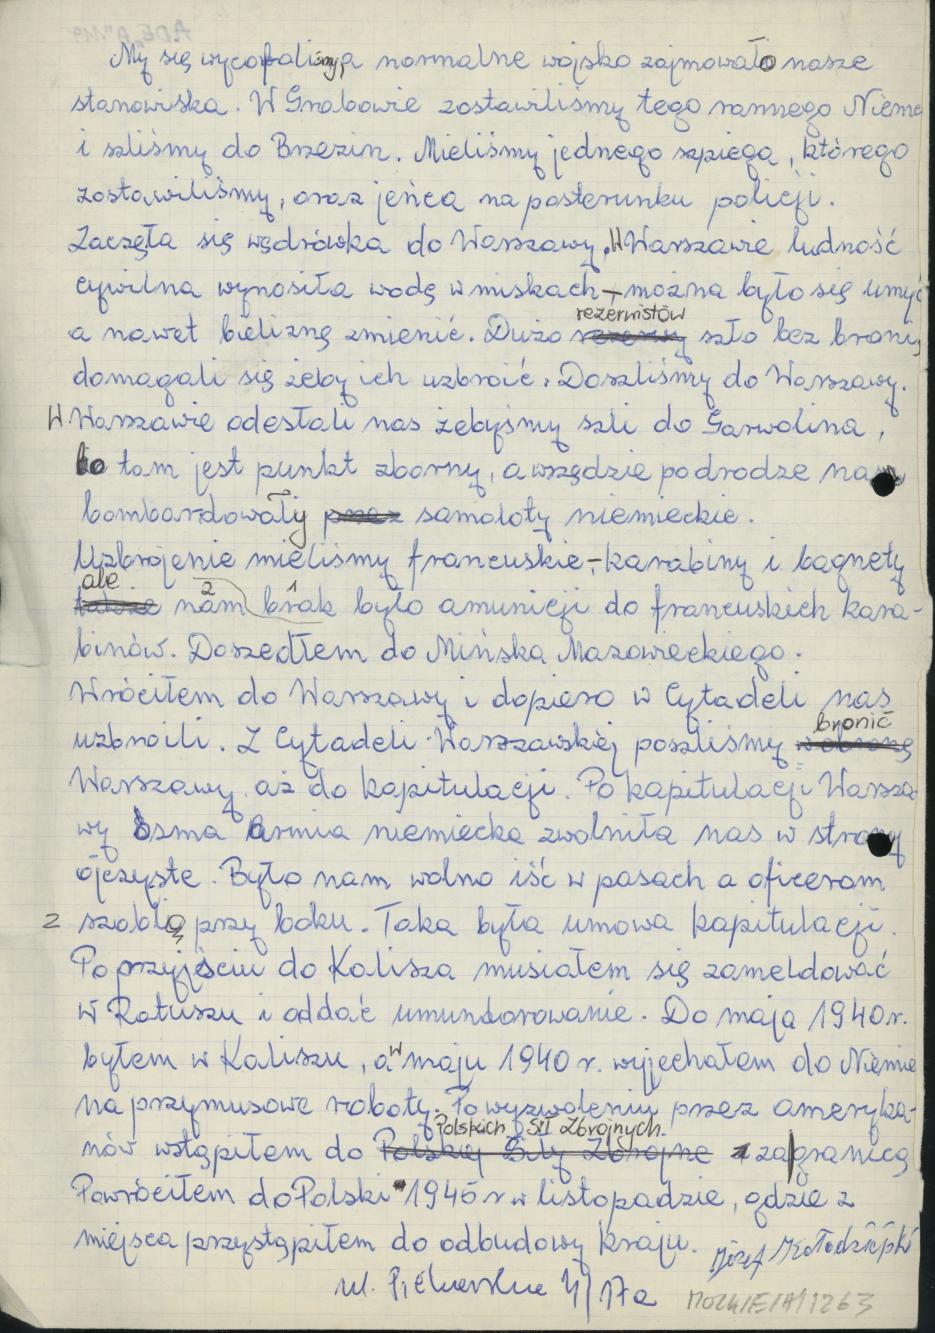 My się wycofaliśmy, a normalne wojsko zajmowało nasze
stanowiska. W Grabowie zostawiliśmy tego rannego Niemc
i szliśmy do Brzezin. Mieliśmy jednego szpiega, którego
zostawiliśmy, oraz jeńca na posterunku policji.
Zaczęła się wędrówka do Warszawy. W Warszawie ludność
cywilna wynosiła wodę w miskach - można było się umyć
a nawet bieliznę zmienić. Dużo rezerwistów szło bez broni,
domagali się żeby ich uzbroić. Doszliśmy do Warszawy.
W Warszawie odesłali nas żebyśmy szli do Garwolina,
bo tam jest punkt zborny, a wszędzie po drodze nas
bombardowały przez samoloty niemieckie.
Uzbrojenie mieliśmy francuskie, - karabiny i bagnety
ale 2 nam 1 brak było amunicji do francuskich kara-
binów. Doszedłem do Mińska Mazowieckiego.
Wróciłem do Warszawy i dopiero w Cytadeli nas
uzbroili. Z Cytadeli Warszawskiej poszliśmy w obronę bronić
Warszawy, aż do kapitulacji. Po kapitulacji Warsza-
wy ósma armia niemiecka zwolniła nas w strony
ojczyste. Było nam wolno iść w pasach a oficerom
z szablą przy boku. Taka była umowa kapitulacji.
Po przyjściu do Kalisza musiałem się zameldować
w Ratuszu i oddać umundurowanie. Do maja 1940 r.
byłem w Kaliszu, a w maju 1940 r. wyjechałem do Niemie
na przymusowe roboty. Po wyzwoleniu przez ameryka-
nów wstąpiłem do Polskiej Siły Zbrojne Polskich Sił Zbrojnych. zagranicą
Powróciłem do Polski 1945 r w listopadzie, gdzie z
miejsca przystąpiłem do odbudowy kraju. Józef
ul. 4/17a
1263